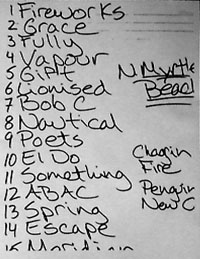 1 Fireworks
2 Grace
3 Fully
4 Vapour
5 Gift
6 Lionised
7 Bob C
8 Nautical
9 Poets
10 El Do
11 Something
12 ABAC
13 Spring
14 Escape
15 Meridian
N. Myrtle
Beach
Chagrin
Fire
Penguin
New C